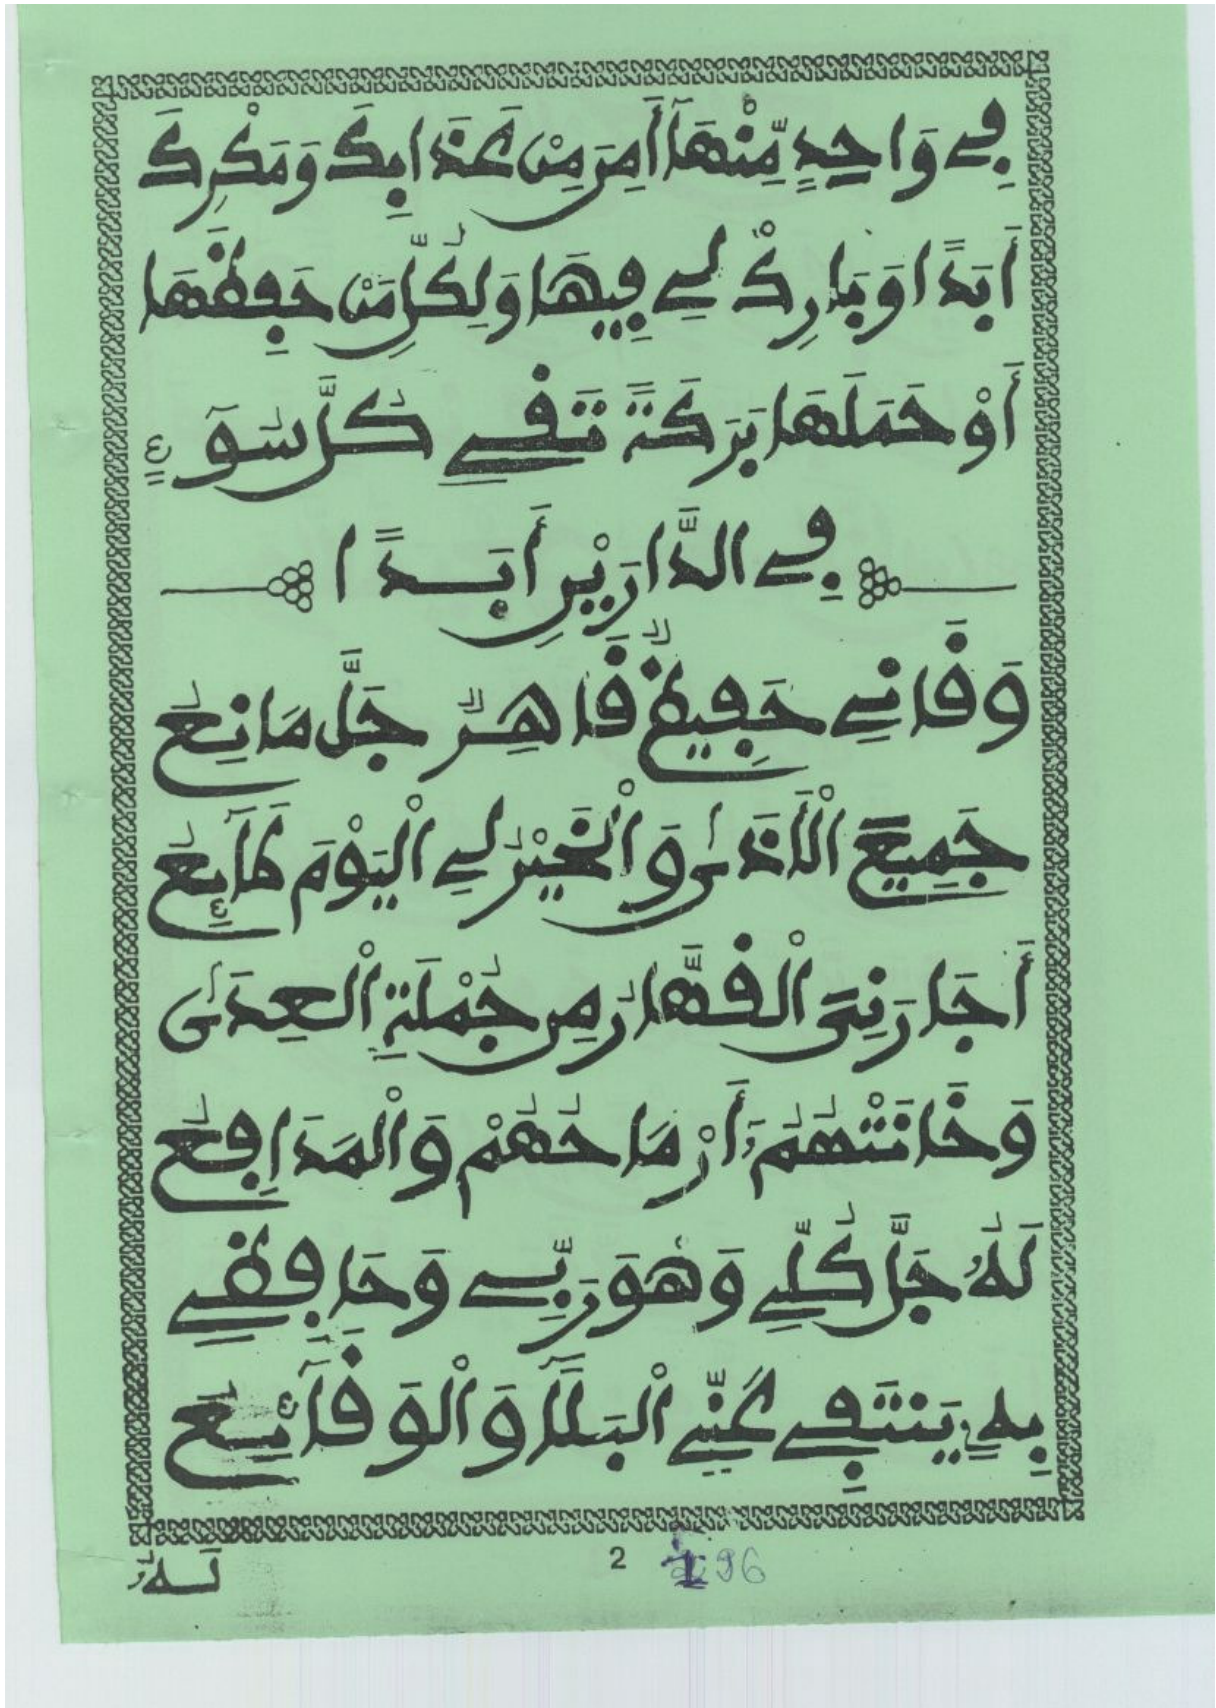 فِے وَاحِدٍ مِّنْهَآ أَمِرَ مِنْ عَذَابِكَ وَمَكْرِكَ
أَبَدًا وَبَارِكْ لِے فِيهَا وَلِكُلِّ مَنْ حَفِظَهَا
أَوْ حَمَلَهَا بَرَكَةً تَقِے كُلَّ سُوٓءٍ
فِے الدَّارَيْنِ أَبَدًا
وَقَانِے حَفِيظٌ قَاهِرٌ جَلَّ مَانِعُ
جَمِيعَ الْأَذَىٰ وَالْخَيْرُ لِے الْيَوْمَ طَآئِعُ
أَجَارَنِىَ الْقَهَّارُ مِن جُمْلَةِ الْعِدَىٰ
وَخَانَتْهُمُۥٓ أَرْمَاحُهُمْ وَالْمَدَافِعُ
لَهُۥ جَلَّ كُلِّے وَهْوَ رَبِّے وَحَافِظِے
بِهِۦ يَنتَفِے عَنِّے الْبَلَآ وَالْوَقَآئِعُ
2
96
لَهُۥ